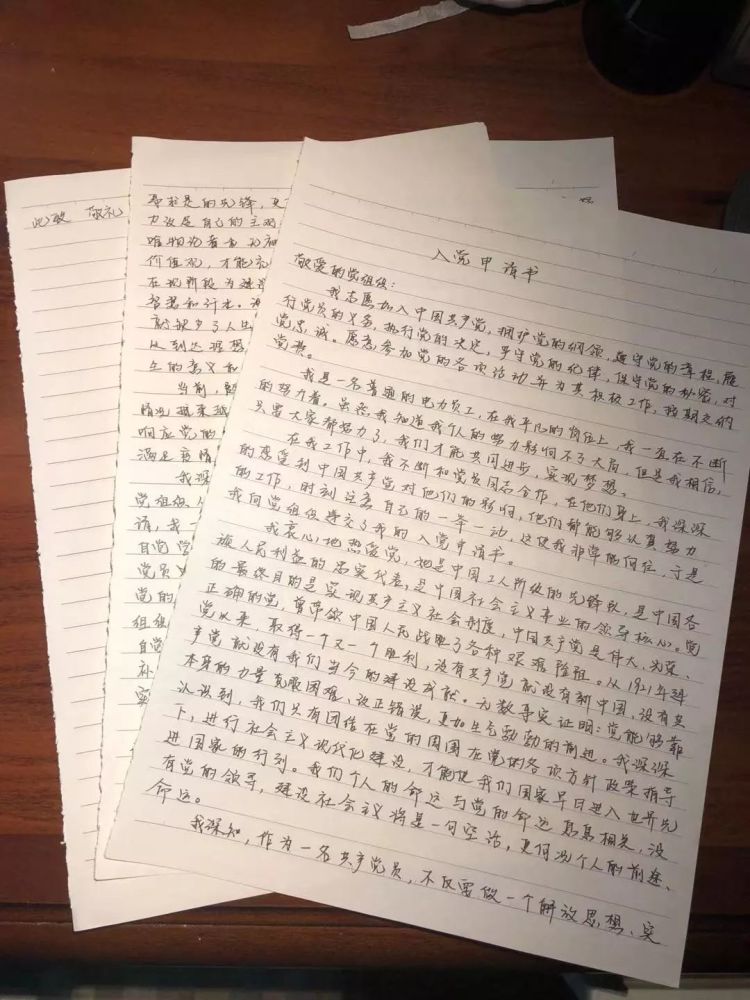 入党申请书
敬爱的党组织：
我志愿加入中国共产党，拥护党的纲领，遵守党的章程，履
行党员的义务，执行党的决定，严守党的纪律，保守党的秘密，对
党忠诚。愿意参加党的各项活动并为其积极工作，按期交纳
党费。
我是一名普通的电力员工，在我平凡的岗位上，我一直在不断
的努力着。虽然我知道我个人的努力影响不了大局，但是我相信，
只要大家都努力了，我们才能共同进步，实现梦想。
在我工作中，我不断和党员同志合作，在他们身上，我深深
的感觉到中国共产党对他们的影响，他们都能够认真努力
的工作，时刻注意自己的一举一动，这使我非常的向往，于是
我向党组织递交了我的入党申请书。
我衷心地热爱党，她是中国工人阶级的先锋队，是中国各
族人民利益的忠实代表，是中国社会主义事业的领导核心。党
的最终目的是实现共产主义社会制度，中国共产党是伟大、光荣、
正确的党，曾带领中国人民战胜了各种艰难险阻。从1921年建
党以来 取得一个又一个胜利，没有共产党就没有新中国，没有共
产党就没有我们当今的建设成就。无数事实证明：党能够靠
本身的力量克服困难、改正错误，更加生气勃勃的前进。我深深
认识到，我们只有团结在党的周围在党的各项方针政策指导
下，进行社会主义现代化建设，才能使我们国家早日进入世界先
进国家的行列。我们个人的命运与党的命运息息相关，没
有党的领导，建设社会主义将是一句空话，更何况个人的前途、
命运。
我深知，作为一名共产党员，不仅要做一个解放思想、实
事求是的先锋，更
力改造自己的主观
唯物论看
价值观，才能
在现阶段为建设
智慧和汗水。
的缺少了人生
从到达理想
生的意义和
当前，
情况越来越
响应党的
满足
我深
党组织
请，我一
自觉学
党员
党的
组织
自觉
补
实
此致 敬礼